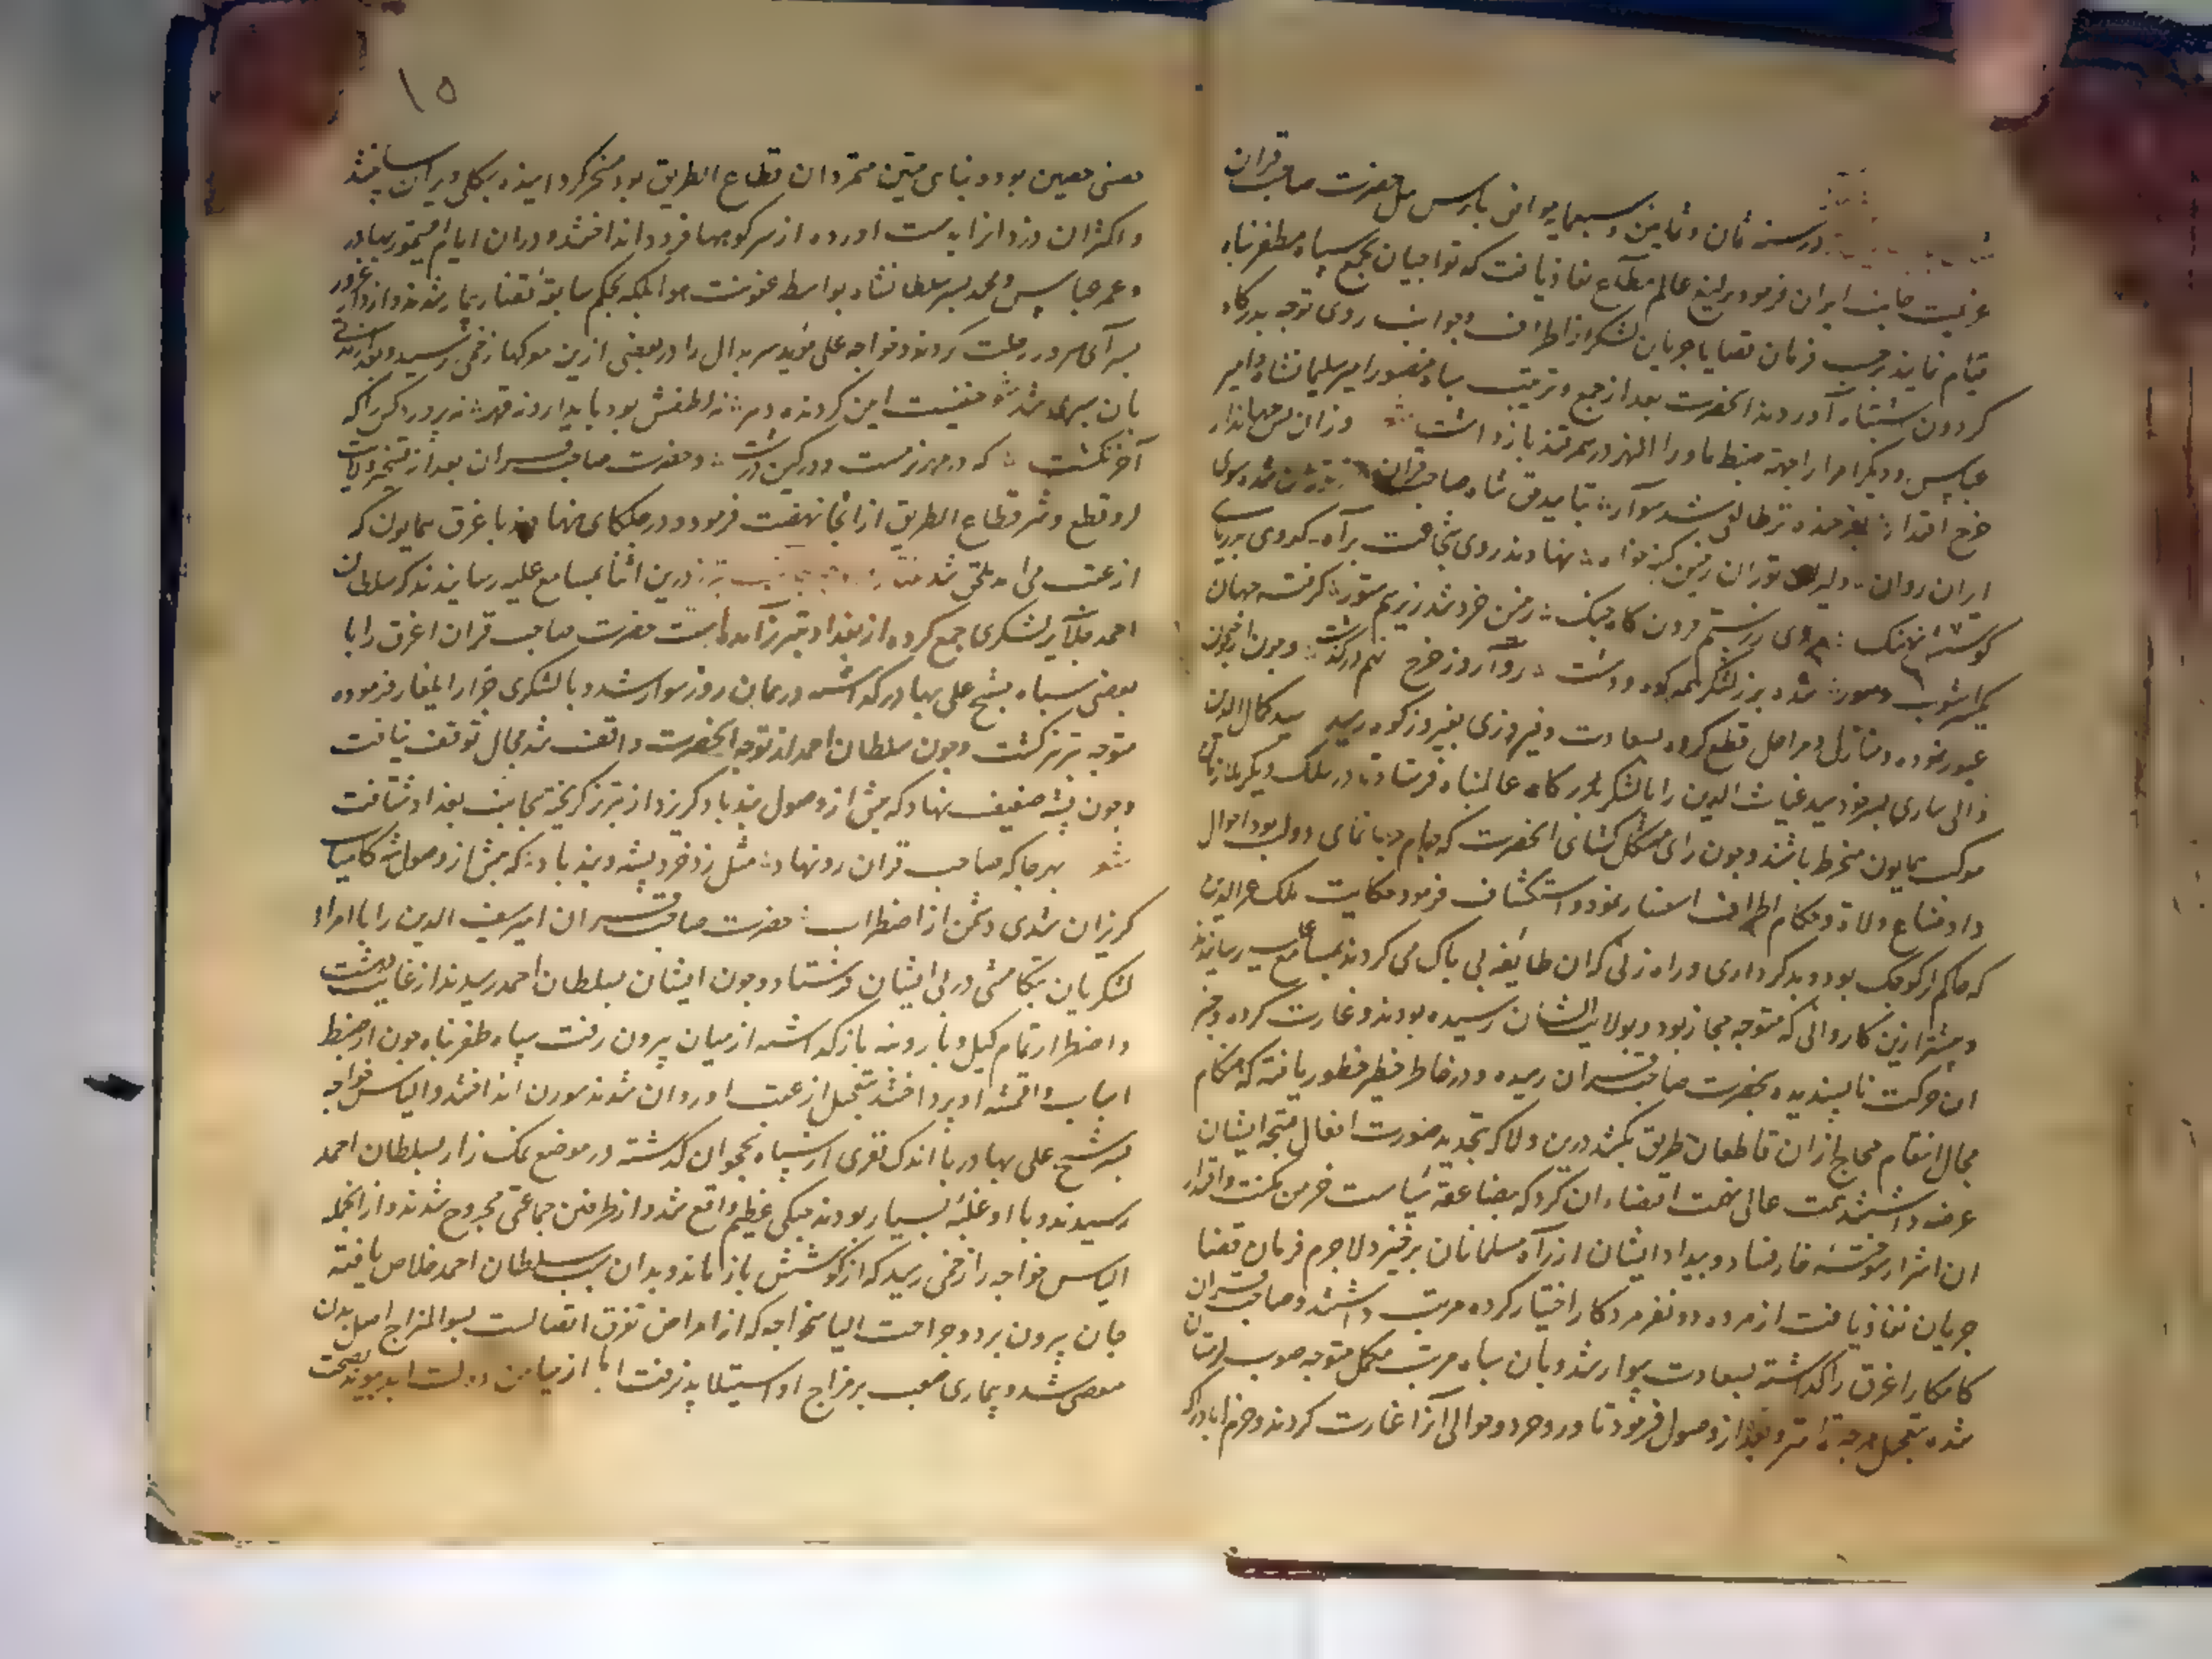 در سنه ثمان و ثمانین و سبعمایه موافق بارس ئیل حضرت صاحب قران
عزیمت جانب ایران فرمود یرلیغ عالم مطاع نفاذ یافت که تواجیان بجمع سپاه ظفرپناه
قیام نمایند بر حسب فرمان قضایا جریان لشکر از اطراف و جوانب روی توجه بدرکاه
کردون اشتباه آوردند انحضرت بعد از جمع و ترتیب سپاه منصور امیر سلیمانشاه و امیر
عباس و دیکر امرا را جهة ضبط ماورا النهر در سمرقند بازداشت
ایران روان دلیران توران زمین کینه خواه نهادند روی
یکسر اشوب و سور شده پر ز لشکر همه کوه و دشت
عبور نموده و منازل و مراحل قطع کرده بسعادت و فیروزی بفیروزکوه رسید سید کمال الدین
والی ساری پسر خود سید غیاث الدین را با لشکر بدرکاه عالمپناه فرستاد تا در سلک دیکر ملازمان
موکب همایون منخرط باشند و چون رای مشکل کشای انحضرت که جام جهانمای دولت بود احوال
و اوضاع ولاة و حکام اطراف استفسار نمود و استکشاف فرمود حکایت ملک عزالدین
که حاکم لر کوچک بود و بدکرداری و راه زنی که ان طایفه بی باک می کردند بمسامع علیه رسانیدند
و پیشتر ازین کاروانی که متوجه حجاز بود و بولایت ایشان رسیده بودند و غارت کرده و خبر
این حرکت ناپسندیده بحضرت صاحب قران رسیده و در خاطر خطیر خطور یافته که هنکام
مجال انتقام حجاج از ان قاطعان طریق بکشد درین ولا که بتجدید صورت افعال قبیحه ایشان
عرضه داشتند همت عالی نهمت اقتضاء ان کرد که بصاعقه سیاست خرمن مکنت و اقتدار
ان اشرار سوخته خار فساد و بیداد ایشان از راه مسلمانان برخیزد لاجرم فرمان قضا
جریان نفاذ یافت از هر ده دو نفر مرد کار اختیار کرده مرتب داشتند و صاحب قران
کامکار اغرق را کذاشته بسعادت سوار شد و بان سپاه مرتب مکمل متوجه صوب لرستان
شده بتعجیل هرچه تمامتر و بعد از وصول فرمود تا وروجرد و حوالی آنرا غارت کردند و خرم اباد را که
۱۵
حصنی حصین بود و بنای متین متمردان قطاع الطریق بود مسخر کردانیده بکلی ویران ساختند
و اکثر ان دزدانرا بدست اورده از سر کوهها فرود انداختند و دران ایام اقتیمور بهادر
و عمر عباس و محمد پسر سلطانشاه بواسطه عفونت هوا بلکه بحکم سابقه قضا بیمار شدند و از دار غرور
بسرآی سرور رحلت کردند و خواجه علی موید سربدال را در بعضی ازین موکبها زخمی رسید و بعد از مدتی
بان سپری شد حقیقت این کردنده دهر نه لطفش بود پایدار و نه قهر نه پرورد کس را که
آخر نکشت که در مهر نرمست و در کین درشت و حضرت صاحب قران بعد از تسخیر ولایت
لر و قطع و شر قطاع الطریق از انجا نهضت فرمود و در جلکای نهاوند با غرق همایون که
از عقب می امد ملحق شد درین اثنا بمسامع علیه رسانیدند که سلطان
احمد جلایر لشکری جمع کرده از بغداد بتبریز آمده است حضرت صاحب قران اغرق را با
بعضی سپاه بشیخ علی بهادر کذاشته در همان روز سوار شد و با لشکری جرار ایلغار فرموده
متوجه تبریز کشت و چون سلطان احمد از توجه انحضرت واقف شد مجال توقف نیافت
و چون پشه ضعیف نهاد که پیش از وصول تندباد کریزد از تبریز کریخته بجانب بغداد شتافت
شو بهر جا که صاحب قران رو نهاد مثل زد خرد پشه و تندباد که پیش از وصول شه کامیاب
کریزان شدی دشمن از اضطراب حضرت صاحب قران امیر سیف الدین را با امراء
لشکریان بتکامشی در پی ایشان فرستاد و چون ایشان بسلطان احمد رسیدند از غایت دهشت
و اضطرار تمام کیل و بار و بنه بازکذاشته از میان بیرون رفت سپاه ظفرپناه چون از ضبط
اسباب و اقمشه او پرداختند بتعجیل از عقب او روان شدند سورن انداختند و الیاس خواجه
پسر شیخ علی بهادر با اندک نفری از سپاه نخجوان کذشته در موضع نمک زار بسلطان احمد
رسیدند و با او غلبه بسیار بودند جنکی عظیم واقع شد و از طرفین جماعتی مجروح شدند و از انجمله
الیاس خواجه را زخمی رسید که از کوشش باز ماند و بدان سبب سلطان احمد خلاص یافته
جان بیرون برد و جراحت الیاس خواجه که از امراض تفرق اتصالست بسوالمزاج اصل بدن
مفضی شد و بیماری صعب بر مزاج او استیلا پذیرفت اما از میامن دولت ابد پیوند بصحت